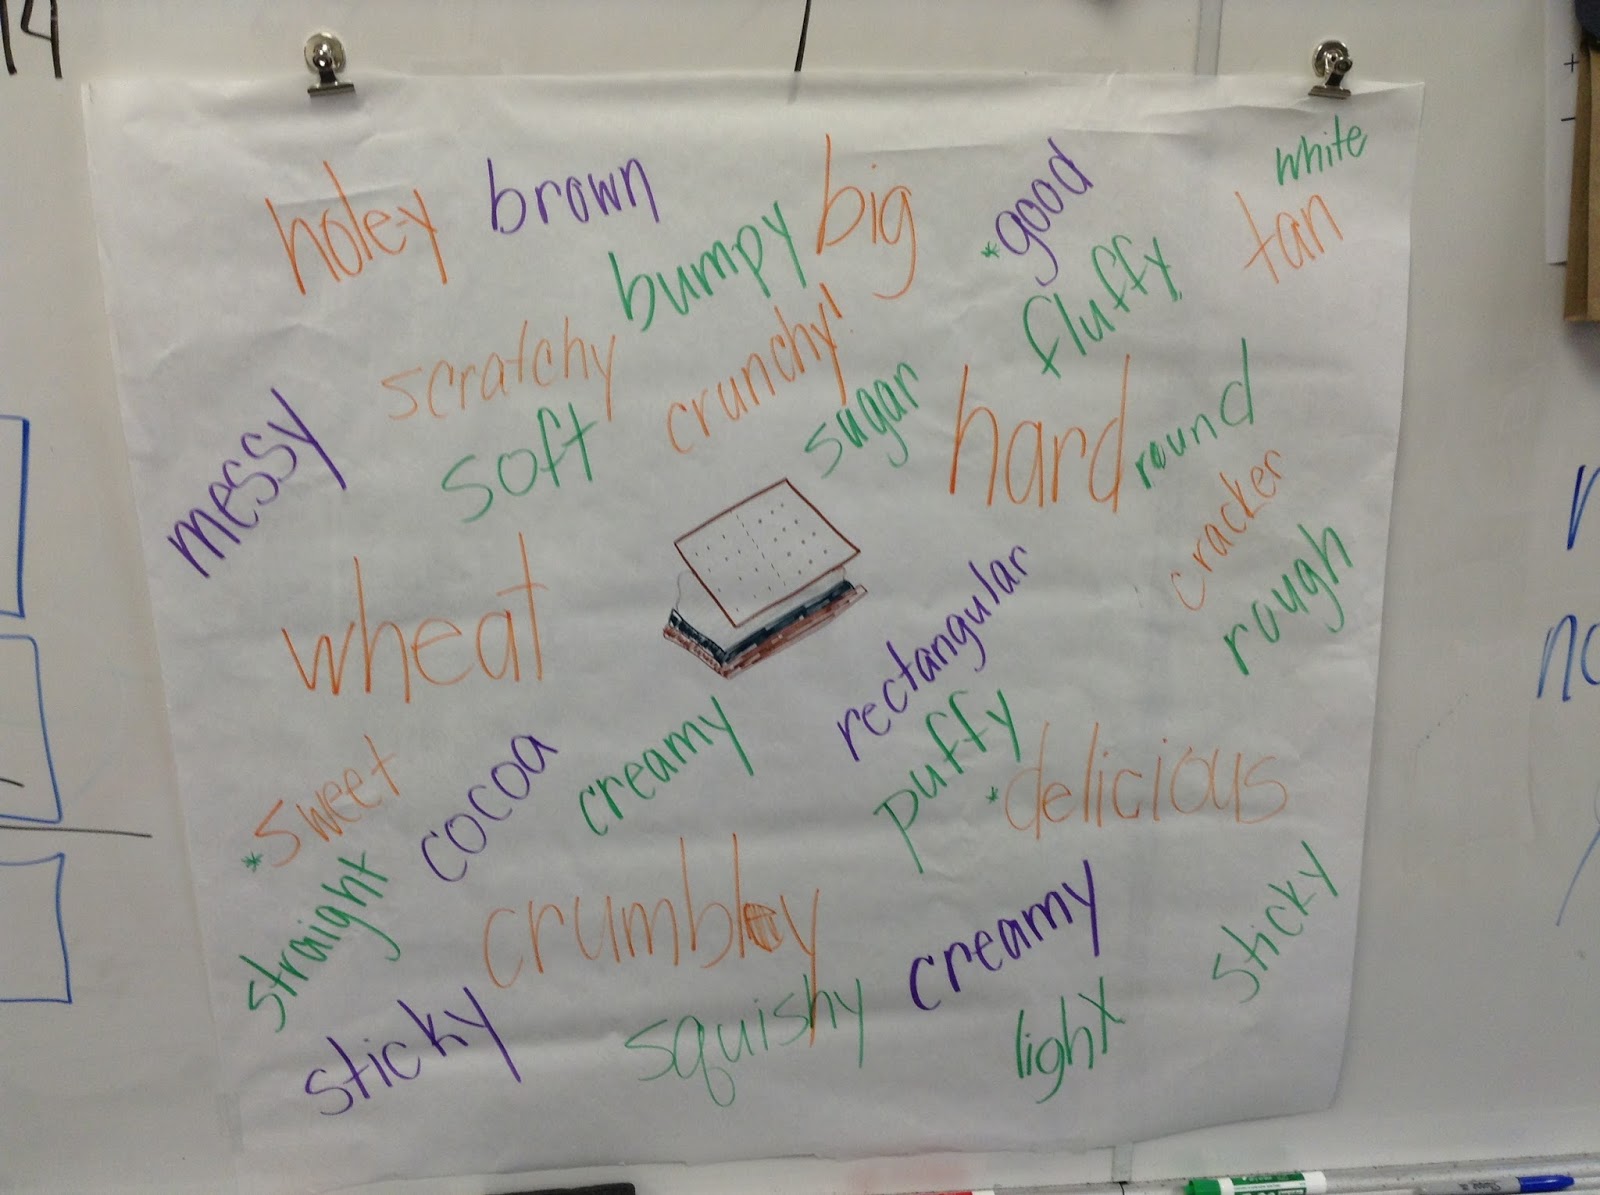 14
holey
brown
big
*good
white
bumpy
tan
fluffy
scratchy
crunchy!
sugar
hard
round
messy
soft
cracker
rough
wheat
rectangular
*sweet
cocoa
creamy
puffy
*delicious
straight
crumbly
creamy
sticky
sticky
squishy
light